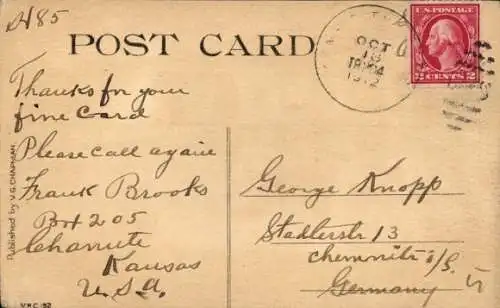 A485
POST CARD
OCT
18
1912
U.S. POSTAGE
2 CENTS 2
Thanks for your
fine Card
Please call again
Frank Brooks
Box 205
Chanute
Kansas
U.S.A.
George Knopp
Stadlerstr 13
Chemnitz i/S.
Germany
Published by V. G. CHAPMAN